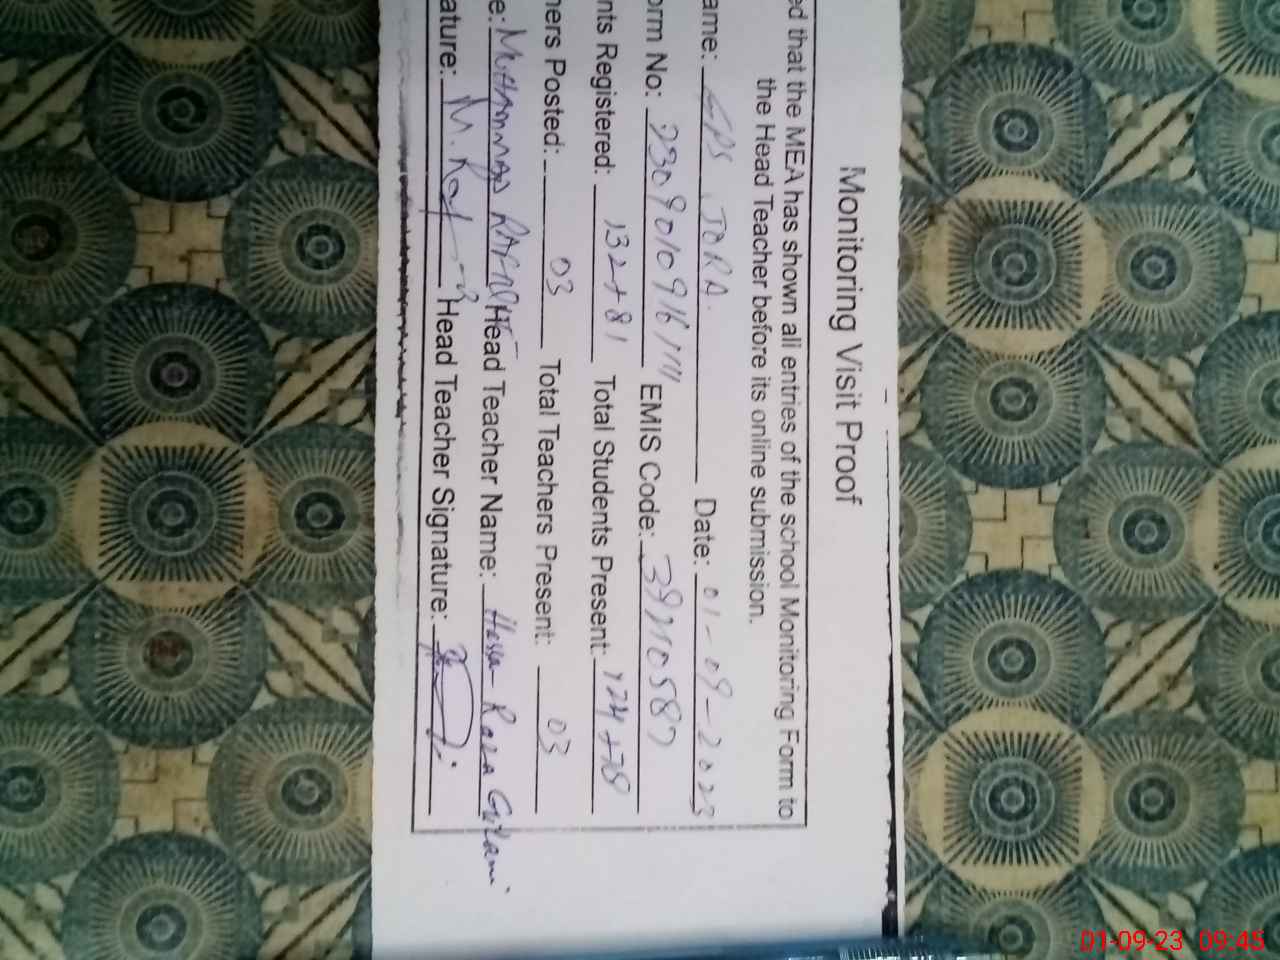 Monitoring Visit Proof
ed that the MEA has shown all entries of the school Monitoring Form to
the Head Teacher before its online submission.
ame: GPS JORA. Date: 01-09-2023
orm No: EMIS Code:
nts Registered: 132+81 Total Students Present: 124+78
hers Posted: 03 Total Teachers Present: 03
e: Head Teacher Name: Raza Gillani
ature: M. Head Teacher Signature:
01-09-23 09:45